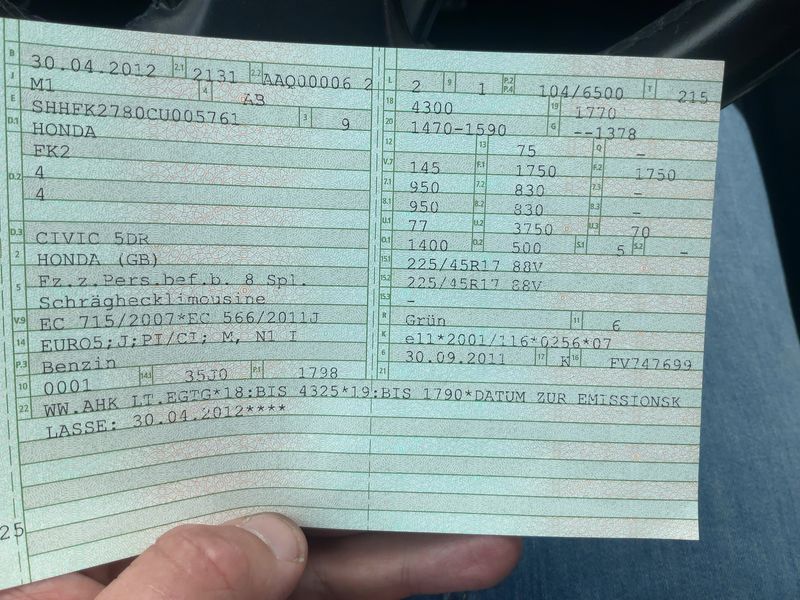 B 30.04.2012 2.1 2131 2.2 AAQ00006 2
J M1 4 AB
E SHHFK2780CU005761 3 9
D.1 HONDA
FK2
D.2 4
4
D.3 CIVIC 5DR
2 HONDA (GB)
5 Fz.z.Pers.bef.b. 8 Spl.
Schräghecklimousine
V.9 EC 715/2007*EC 566/2011J
14 EURO5;J;PI/CI; M, N1 I
P.3 Benzin
10 0001 14.1 35J0 P.1 1798
22 WW.AHK LT.EGTG*18:BIS 4325*19:BIS 1790*DATUM ZUR EMISSIONSK
LASSE: 30.04.2012****
25
L 2 9 1 P.2 P.4 104/6500 T 215
18 4300 19 1770
20 1470-1590 G --1378
12 13 75 Q -
V.7 145 F.1 1750 F.2 1750
7.1 950 7.2 830 7.3 -
8.1 950 8.2 830 8.3 -
U.1 77 U.2 3750 U.3 70
O.1 1400 O.2 500 S.1 5 S.2 -
15.1 225/45R17 88V
15.2 225/45R17 88V
15.3 -
R Grün 11 6
K e11*2001/116*0256*07
6 30.09.2011 17 K 16 FV747699
21